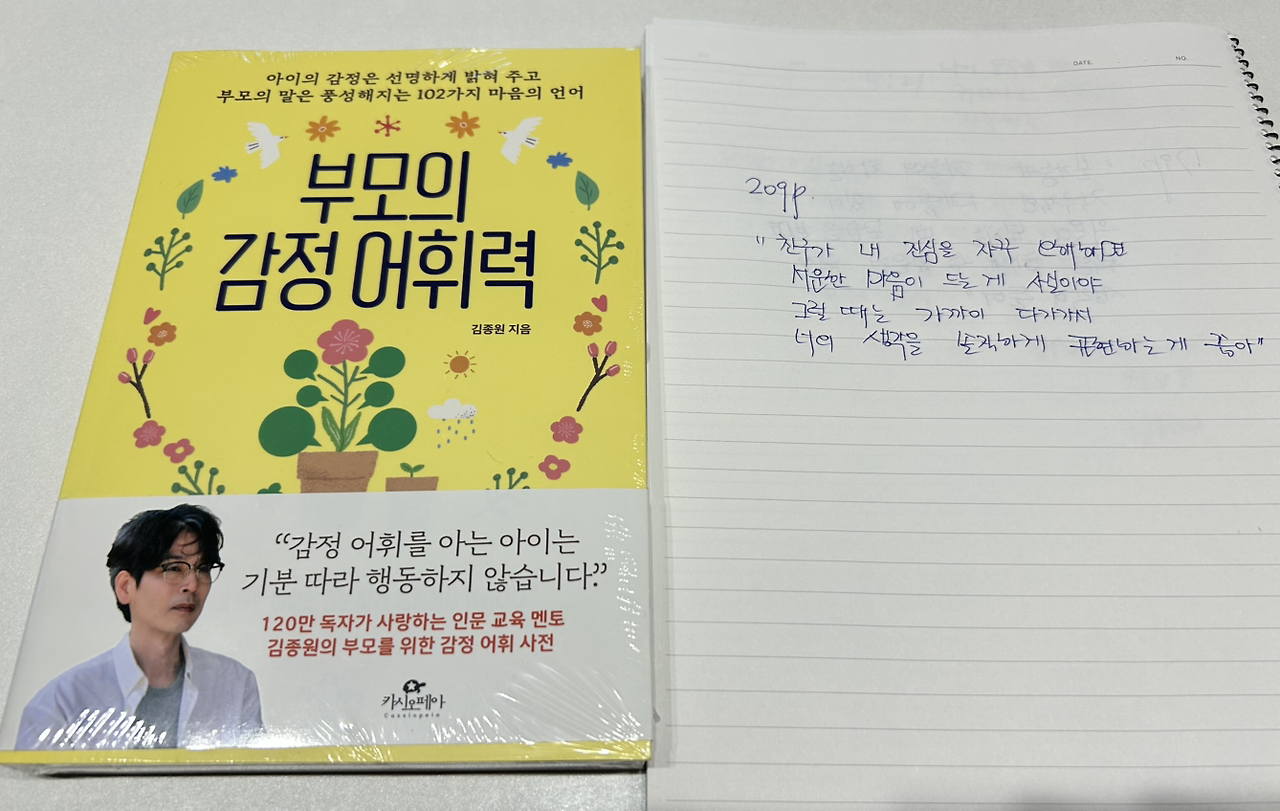 아이의 감정은 선명하게 밝혀 주고
부모의 말은 풍성해지는 102가지 마음의 언어
부모의
감정 어휘력
김종원 지음
“감정 어휘를 아는 아이는
기분 따라 행동하지 않습니다.”
120만 독자가 사랑하는 인문 교육 멘토
김종원의 부모를 위한 감정 어휘 사전
카시오페아
Cassiopeia
DATE. NO.
209p.
"친구가 내 진심을 자꾸 오해하면
서운한 마음이 드는 게 사실이야
그럴 때는 가까이 다가가서
너의 생각을 솔직하게 표현하는 게 좋아"